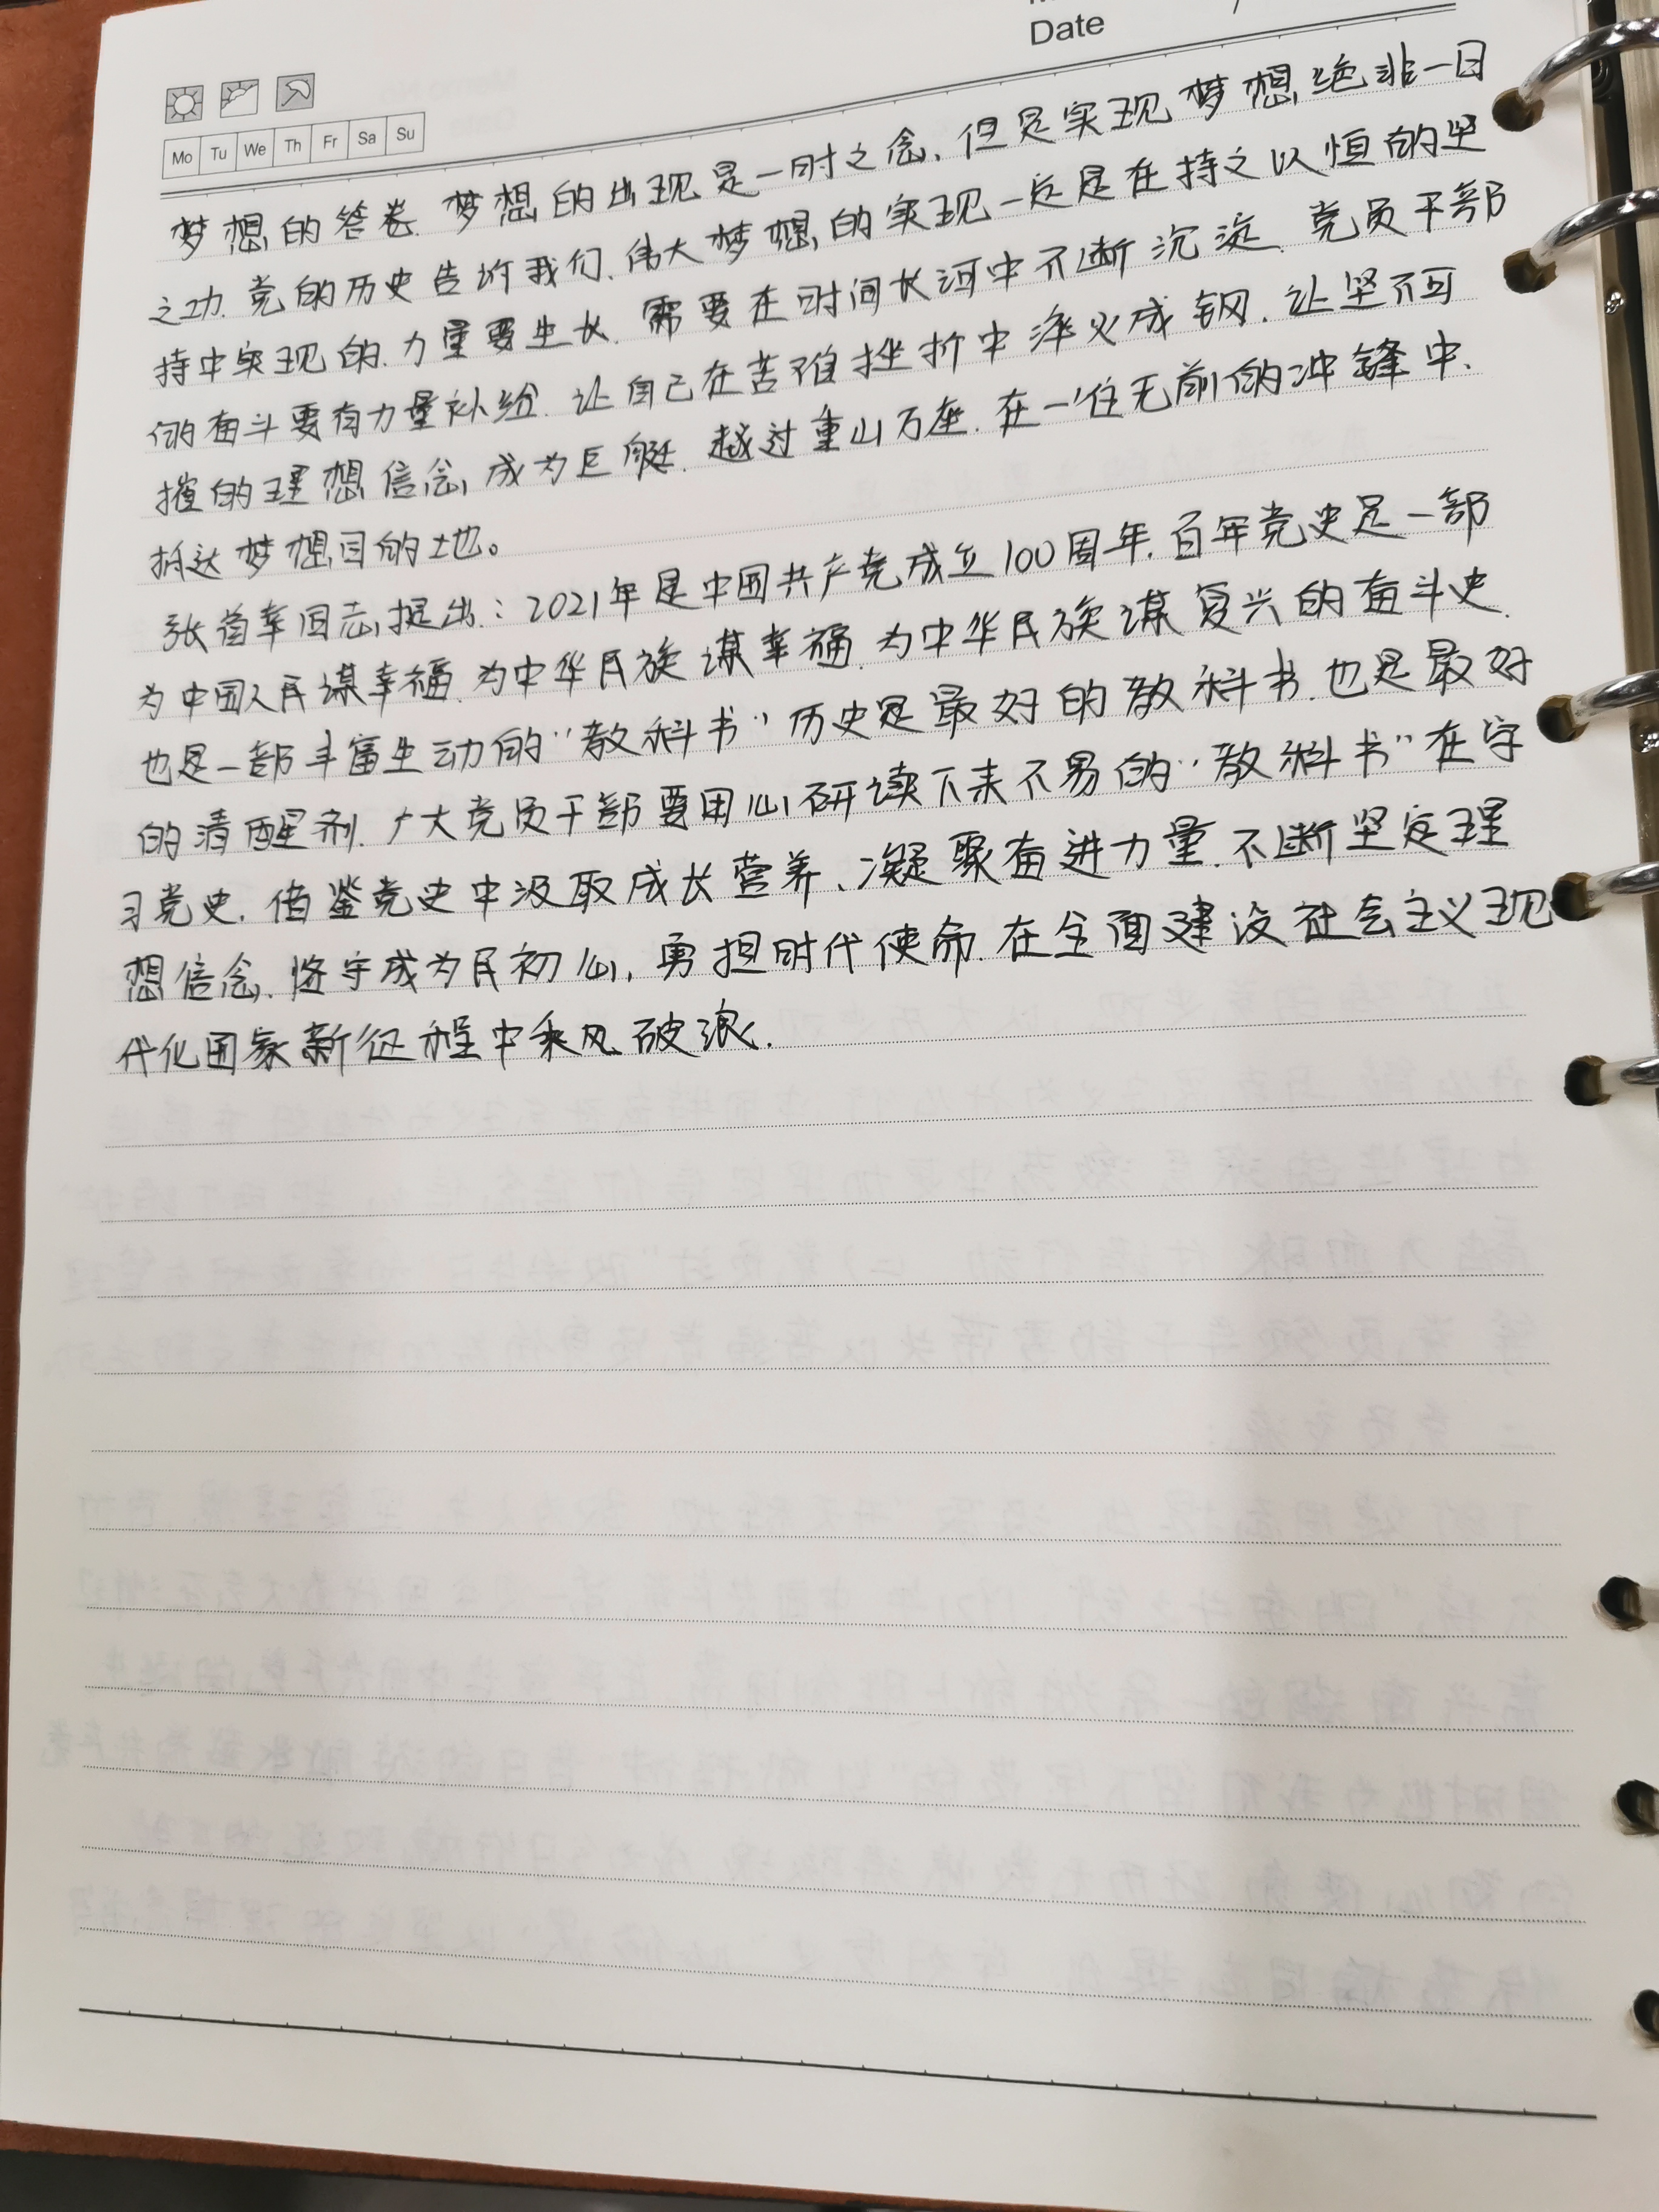 Date
Mo Tu We Th Fr Sa Su
梦想的答卷.梦想的出现是一时之念,但是实现梦想绝非一日
之功.党的历史告诉我们,伟大梦想的实现一定是在持之以恒的坚
持中实现的.力量要生长.需要在时间长河中不断沉淀.党员干部
的奋斗要有力量补给.让自己在苦难挫折中淬火成钢.让坚不可
摧的理想信念成为巨艇.越过重山万座.在一往无前的冲锋中、
抵达梦想目的地。
张首幸同志提出:2021年是中国共产党成立100周年.百年党史是一部
为中国人民谋幸福.为中华民族谋幸福.为中华民族谋复兴的奋斗史.
也是一部丰富生动的“教科书”历史是最好的教科书.也是最好
的清醒剂.广大党员干部要用心研读下来不易的“教科书”在字
习党史.借鉴党史中汲取成长营养、凝聚奋进力量.不断坚定理
想信念.恪守成为民初心,勇担时代使命.在全面建设社会主义现
代化国家新征程中乘风破浪.